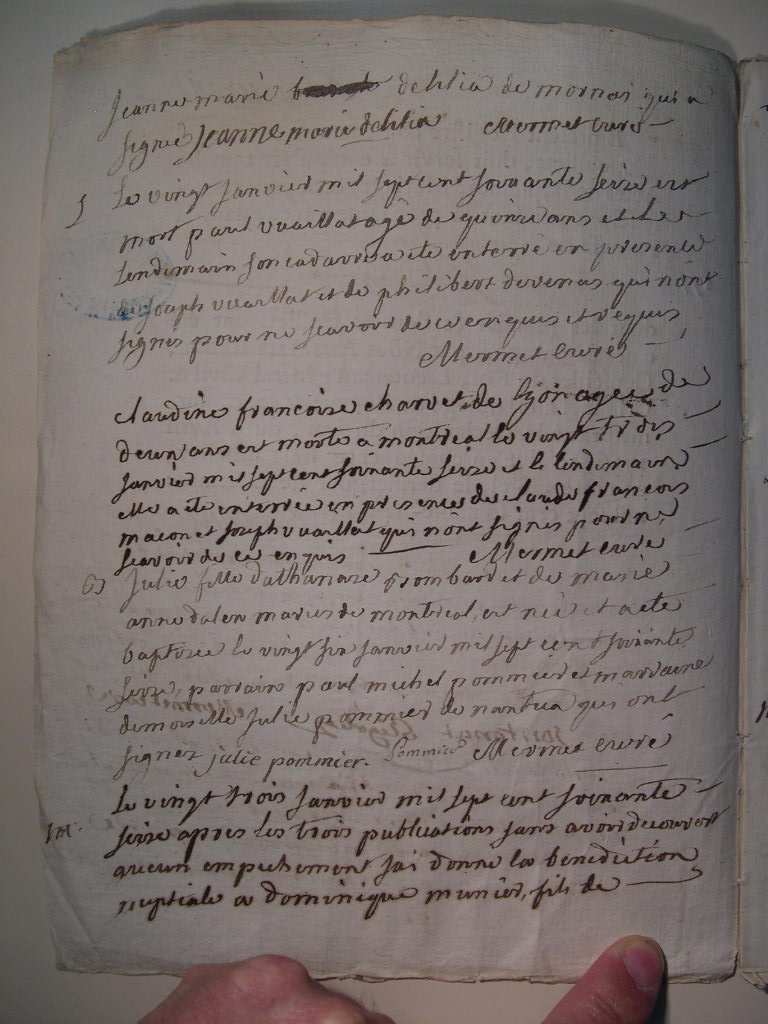 jeanne marie delilia de mornai qui a
signé jeanne marie delilia Mermet curé
5 Le vingt janvier mil sept cent soixante seize est
mort paul vuaillat agé de quinze ans et le
lendemain son cadavre a ete enterré en presence
de joseph vuaillat et de philibert devenas qui n'ont
signes pour ne scavoir de ce enquis et requis
Mermet curé
claudine francoise charvet de lyon agee de
deux ans est morte a montreal le vingt trois
janvier mil sept cent soixante seize et le lendemain
elle a ete enterrée en presence de claude francois
macon et joseph vuaillat qui n'ont signes pour ne
scavoir de ce enquis Mermet curé
6 julie fille d'athanase gombard et de marie
anne dalen maries de montreal, est née et a ete
baptisée le vingt six janvier mil sept cent soixante
seize, parrain paul michel pommier et marraine
demoiselle julie pommier de nantua qui ont
signez julie pommier. Pommier Mermet curé
m. Le vingt trois janvier mil sept cent soixante
seize apres les trois publications sans avoir decouvert
aucun empechement j'ai donné la benediction
nuptiale a dominique munier, fils de